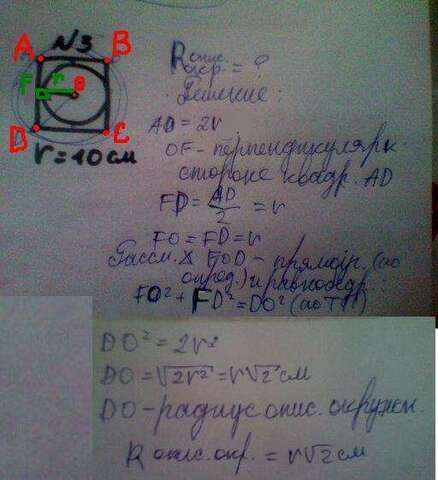 A №3 B
F r O
D C
r = 10 см
R опис. окр. = ?
Решение:
AD = 2r
OF - перпендикуляр к
стороне квадр. AD
FD = AD/2 = r
FO = FD = r
Рассм. FOD - прямоуг. (по
опред.) и равнобедр.:
FO² + FD² = DO² (по ТП)
DO² = 2r²
DO = √2r² = r√2 см
DO - радиус опис. окружн.
R опис. окр. = r√2 см